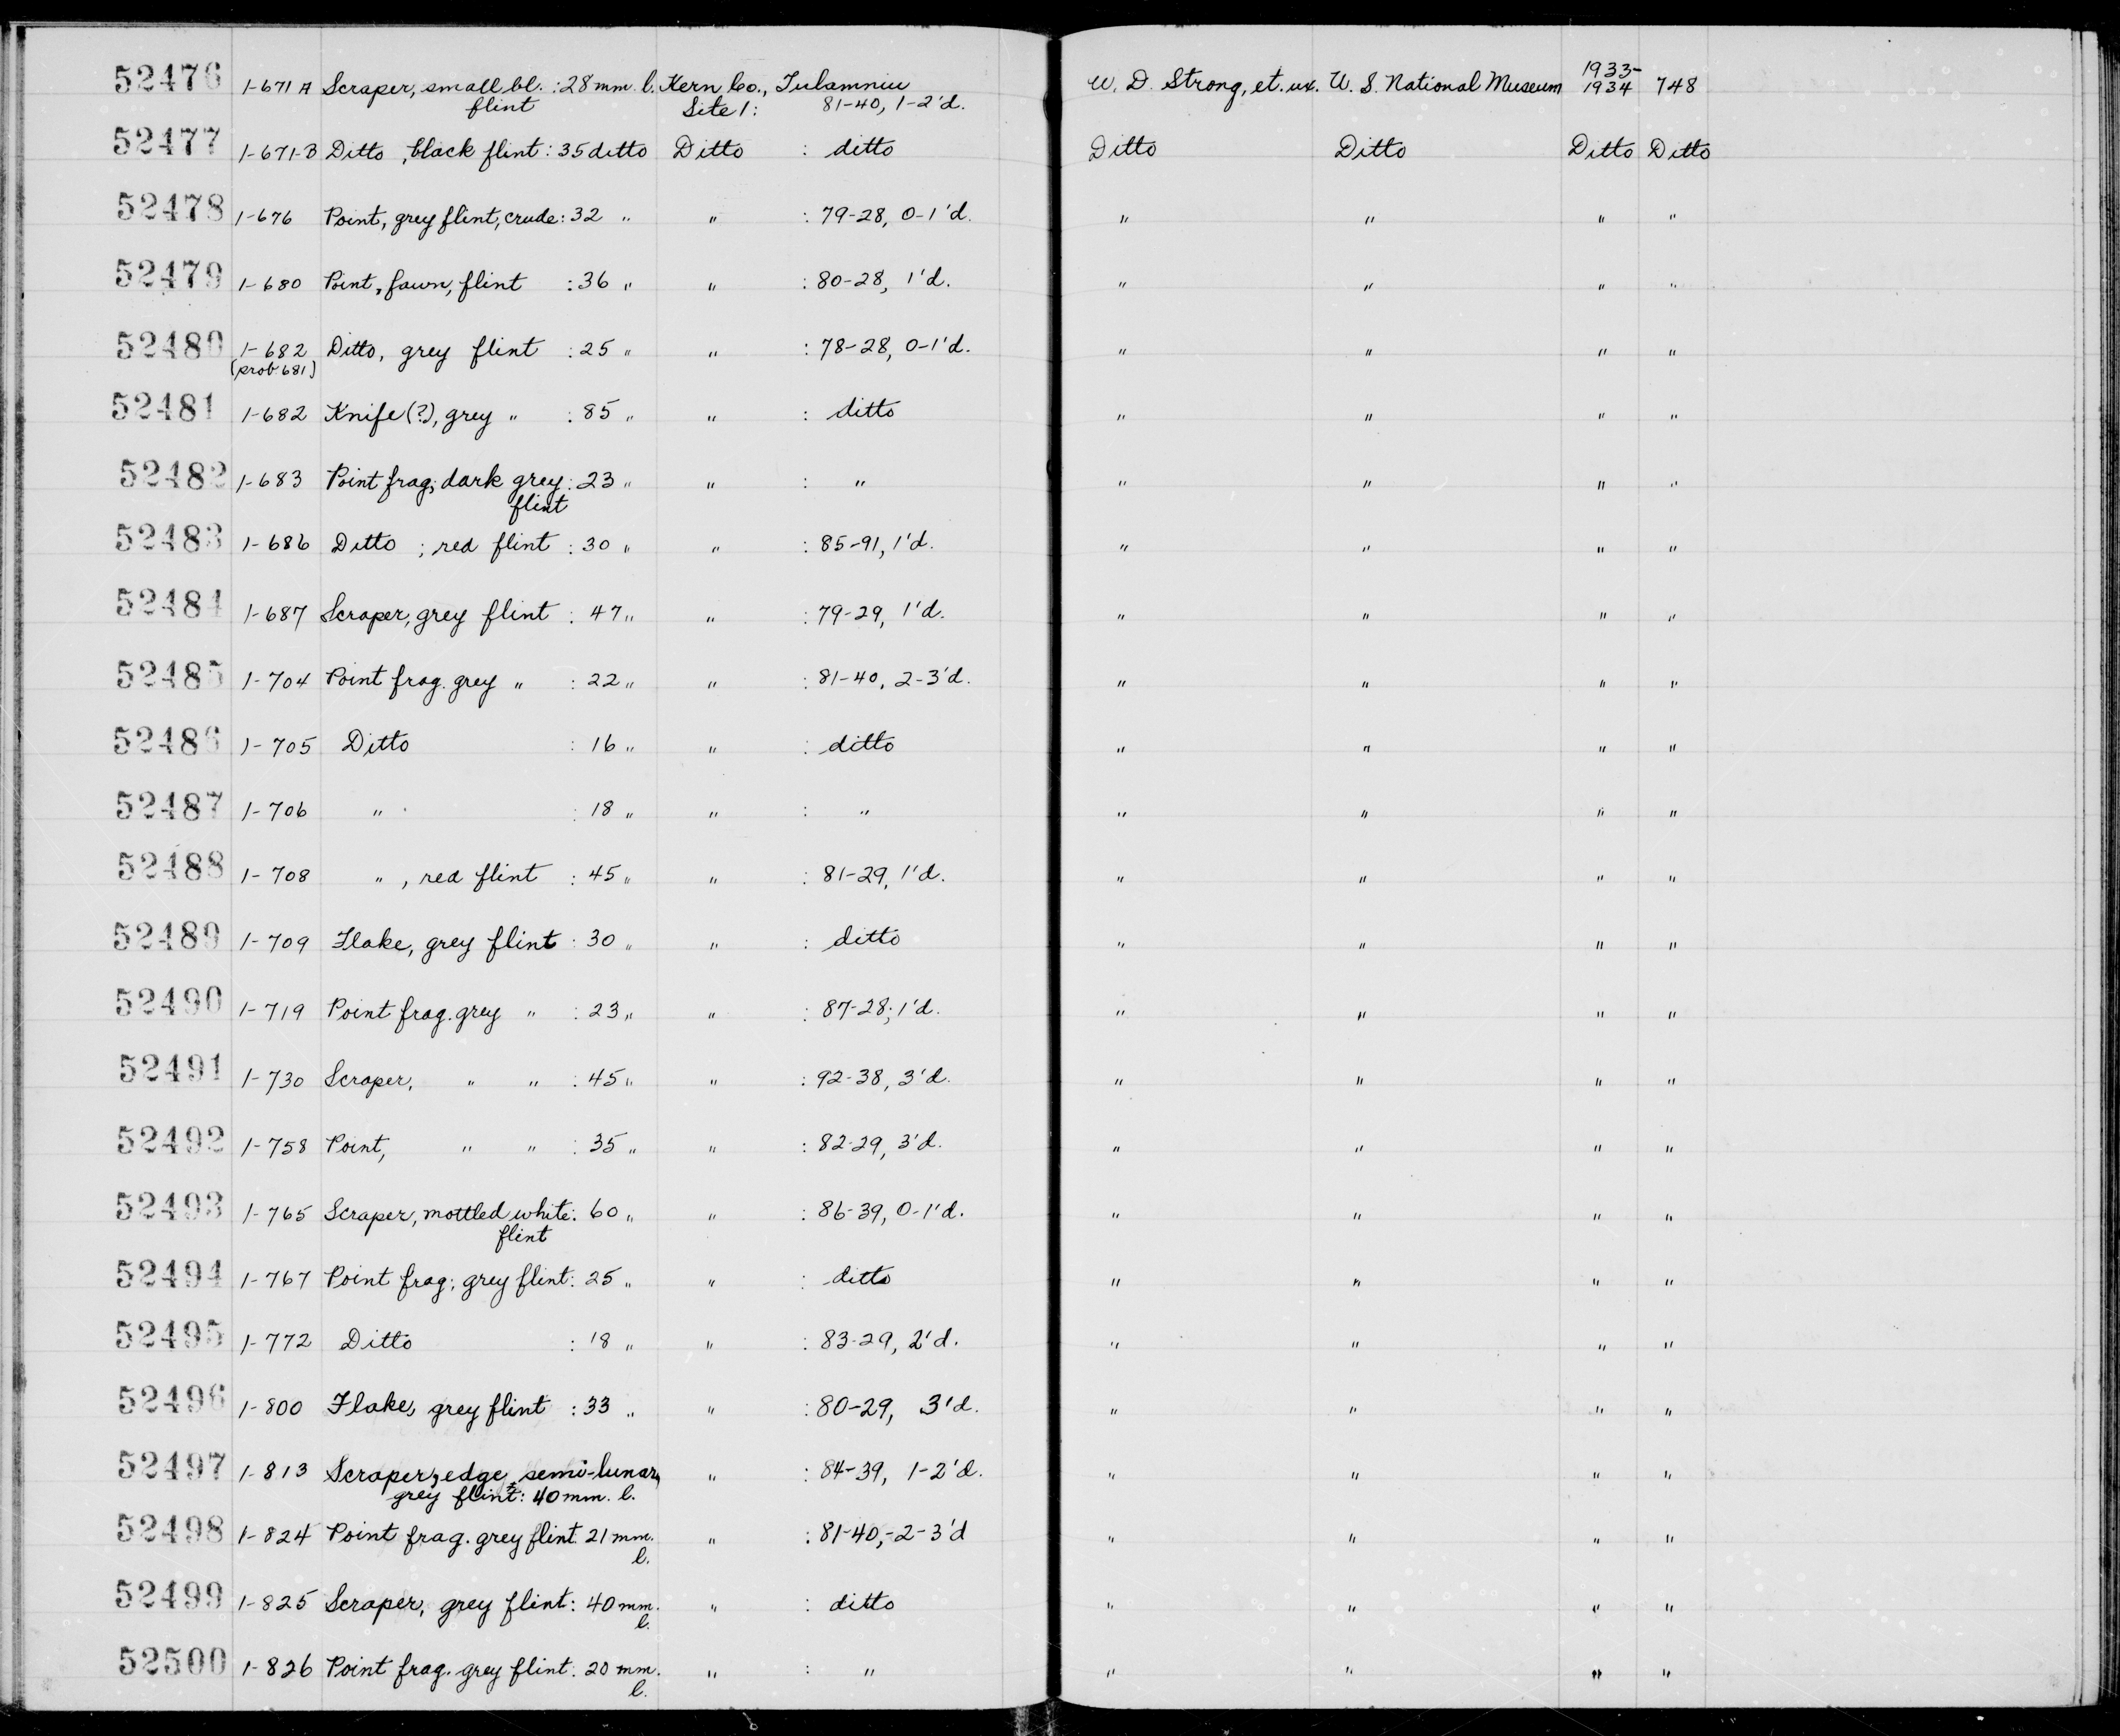 52476 1-671 A Scraper, small bl. : 28 mm. l. Kern Co., Tulamniu W. D. Strong, et. ux. U. S. National Museum 1933-1934 748
flint Site 1: 81-40, 1-2'd.
52477 1-671-B Ditto, black flint : 35 ditto Ditto : ditto Ditto Ditto Ditto Ditto
52478 1-676 Point, grey flint, crude : 32 " " : 79-28, 0-1'd. " " " "
52479 1-680 Point, fawn, flint : 36 " " : 80-28, 1'd. " " " "
52480 1-682 Ditto, grey flint : 25 " " : 78-28, 0-1'd. " " " "
(prob. 681)
52481 1-682 Knife(?), grey " : 85 " " : ditto " " " "
52482 1-683 Point frag; dark grey : 23 " " : " " " " "
flint
52483 1-686 Ditto ; red flint : 30 " " : 85-91, 1'd. " " " "
52484 1-687 Scraper, grey flint : 47 " " : 79-29, 1'd. " " " "
52485 1-704 Point frag. grey " : 22 " " : 81-40, 2-3'd. " " " "
52486 1-705 Ditto : 16 " " : ditto " " " "
52487 1-706 " : 18 " " : " " " " "
52488 1-708 " , red flint : 45 " " : 81-29, 1'd. " " " "
52489 1-709 Flake, grey flint : 30 " " : ditto " " " "
52490 1-719 Point frag. grey " : 23 " " : 87-28; 1'd. " " " "
52491 1-730 Scraper, " " : 45 " " : 92-38, 3'd. " " " "
52492 1-758 Point, " " : 35 " " : 82-29, 3'd. " " " "
52493 1-765 Scraper, mottled white : 60 " " : 86-39, 0-1'd. " " " "
flint
52494 1-767 Point frag; grey flint : 25 " " : ditto " " " "
52495 1-772 Ditto : 18 " " : 83-29, 2'd. " " " "
52496 1-800 Flake, grey flint : 33 " " : 80-29, 3'd. " " " "
52497 1-813 Scraper, edge, semi-lunar, " : 84-39, 1-2'd. " " " "
grey flint : 40 mm. l.
52498 1-824 Point frag. grey flint. 21 mm. " : 81-40,-2-3'd " " " "
l.
52499 1-825 Scraper, grey flint : 40 mm. " : ditto " " " "
l.
52500 1-826 Point frag. grey flint. 20 mm. " : " " " " "
l.